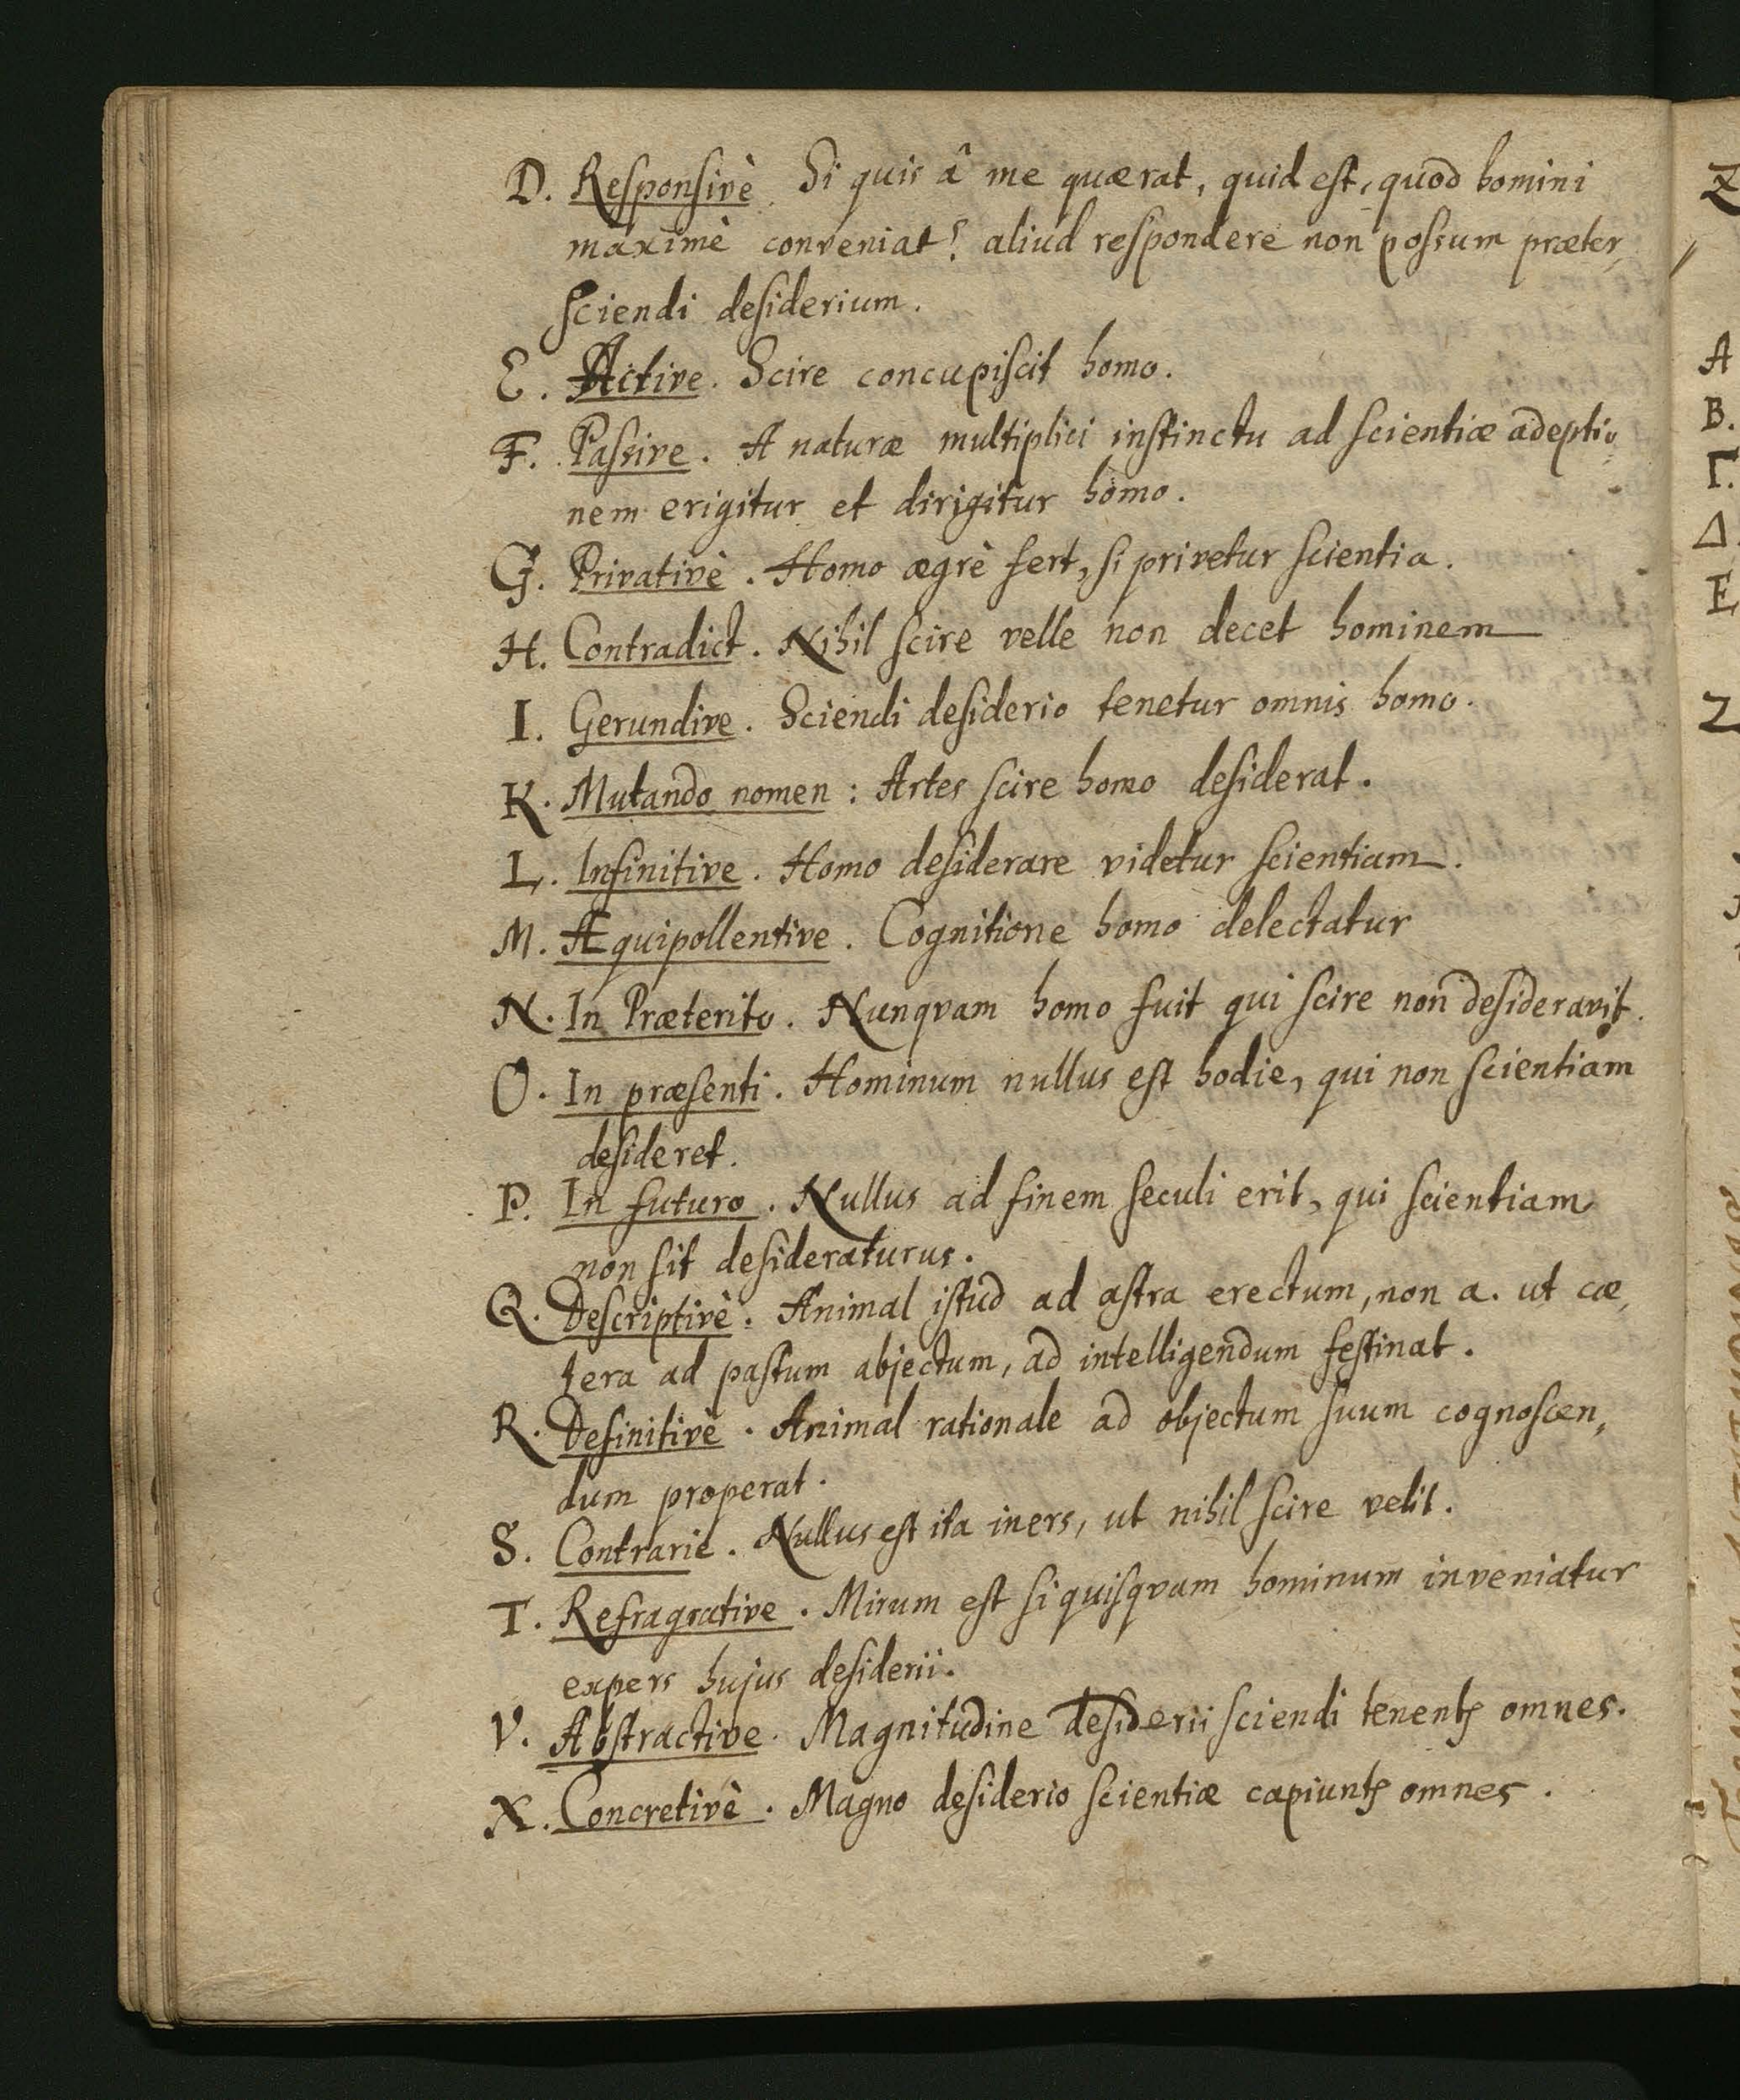 D. Responsivè. Si quis â me quærat, quid est, quod homini
maximè conveniat? aliud respondere non possum præter
sciendi desiderium.
E. Active. Scire concupiscit homo.
F. Passive. A naturæ multiplici instinctu ad scientiæ adeptio
nem erigitur et dirigitur homo.
G. Privativè. Homo ægrè fert, si privetur scientia.
H. Contradict. Nihil scire velle non decet hominem
I. Gerundive. Sciendi desiderio tenetur omnis homo.
K. Mutando nomen: Artes scire homo desiderat.
L. Infinitive. Homo desiderare videtur scientiam.
M. Æquipollentive. Cognitione homo delectatur
N. In Præterito. Nunqvam homo fuit qui scire non desideravit.
O. In præsenti. Hominum nullus est hodie, qui non scientiam
desideret.
P. In futuro. Nullus ad finem seculi erit, qui scientiam
non sit desideraturus.
Q. Descriptivè. Animal istud ad astra erectum, non a. ut cæ,
tera ad pastum abjectum, ad intelligendum festinat.
R. Definitivè. Animal rationale ad objectum suum cognoscen,
dum properat.
S. Contrarie. Nullus est ita iners, ut nihil scire velit.
T. Refragrative. Mirum est si quisqvam hominum inveniatur
expers hujus desiderii.
V. Abstractive. Magnitudine desiderii sciendi tenentꝭ omnes.
X. Concretivè. Magno desiderio scientiæ capiuntꝭ omnes.
A
B.
Γ.
Δ.
E
Z